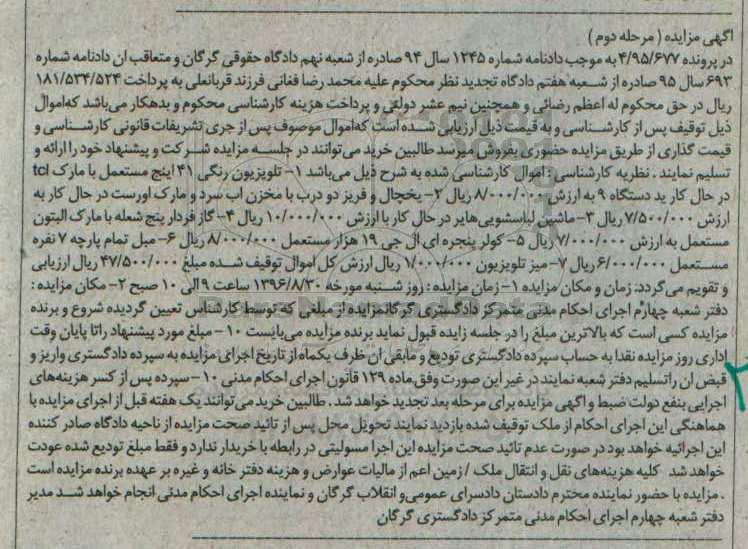 آگهی مزایده ( مرحله دوم )
در پرونده ۴/۹۵/۶۷۷ به موجب دادنامه شماره ۱۲۴۵ سال ۹۴ صادره از شعبه نهم دادگاه حقوقی گرگان و متعاقب ان دادنامه شماره
۶۹۳ سال ۹۵ صادره از شعبه هفتم دادگاه تجدید نظر محکوم علیه محمد رضا فغانی فرزند قربانعلی به پرداخت ۱۸۱/۵۳۴/۵۲۴
ریال در حق محکوم له اعظم رضائی و همچنین نیم عشر دولتی و پرداخت هزینه کارشناسی محکوم و بدهکار می‌باشد که‌اموال
ذیل توقیف پس از کارشناسی و به قیمت ذیل ارزیابی شده است که‌اموال موصوف پس از جری تشریفات قانونی کارشناسی و
قیمت گذاری از طریق مزایده حضوری بفروش میرسد طالبین خرید می‌توانند در جلسه مزایده شرکت و پیشنهاد خود را ارائه و
تسلیم نمایند . نظریه کارشناسی : اموال کارشناسی شده به شرح ذیل می‌باشد ۱- تلویزیون رنگی ۴۱ اینچ مستعمل با مارک tcl
در حال کار ید دستگاه ۹ به ارزش ۸/۰۰۰/۰۰۰ ریال ۲- یخچال و فریز دو درب با مخزن اب سرد و مارک اورست در حال کار به
ارزش ۷/۵۰۰/۰۰۰ ریال ۳- ماشین لباسشویی‌هایر در حال کار با ارزش ۱۰/۰۰۰/۰۰۰ ریال ۴- گاز فردار پنج شعله با مارک الیتون
مستعمل به ارزش ۷/۰۰۰/۰۰۰ ریال ۵- کولر پنجره ای ال جی ۱۹ هزار مستعمل ۸/۰۰۰/۰۰۰ ریال ۶- مبل تمام پارچه ۷ نفره
مستعمل ۶/۰۰۰/۰۰۰ ریال ۷- میز تلویزیون ۱/۰۰۰/۰۰۰ ریال ارزش کل اموال توقیف شده مبلغ ۴۷/۵۰۰/۰۰۰ ریال ارزیابی
و تقویم می‌گردد. زمان و مکان مزایده ۱- زمان مزایده : روز شنبه مورخه ۱۳۹۶/۸/۳۰ ساعت ۹ الی ۱۰ صبح ۲- مکان مزایده :
دفتر شعبه چهارم اجرای احکام مدنی متمرکز دادگستری گرگان‌مزایده از مبلغی که توسط کارشناس تعیین گردیده شروع و برنده
مزایده کسی است که بالاترین مبلغ را در جلسه زایده قبول نماید برنده مزایده می‌بایست ۱۰- مبلغ مورد پیشنهاد را تا پایان وقت
اداری روز مزایده نقدا به حساب سپرده دادگستری تودیع و مابقی ان ظرف یکماه از تاریخ اجرای مزایده به سپرده دادگستری واریز و
قبض ان راتسلیم دفتر شعبه نمایند در غیر این صورت وفق ماده ۱۲۹ قانون اجرای احکام مدنی ۱۰- سپرده پس از کسر هزینه‌های
اجرایی بنفع دولت ضبط و اگهی مزایده برای مرحله بعد تجدید خواهد شد . طالبین خرید می‌توانند یک هفته قبل از اجرای مزایده با
هماهنگی این اجرای احکام از ملک توقیف شده بازدید نمایند تحویل محل پس از تائید صحت مزایده از ناحیه دادگاه صادر کننده
این اجرائیه خواهد بود در صورت عدم تائید صحت مزایده این اجرا مسولیتی در رابطه با خریدار ندارد و فقط مبلغ تودیع شده عودت
خواهد شد کلیه هزینه‌های نقل و انتقال ملک / زمین اعم از مالیات عوارض و هزینه دفتر خانه و غیره بر عهده برنده مزایده است
. مزایده با حضور نماینده محترم دادستان دادسرای عمومی‌و انقلاب گرگان و نماینده اجرای احکام مدنی انجام خواهد شد مدیر
دفتر شعبه چهارم اجرای احکام مدنی متمرکز دادگستری گرگان